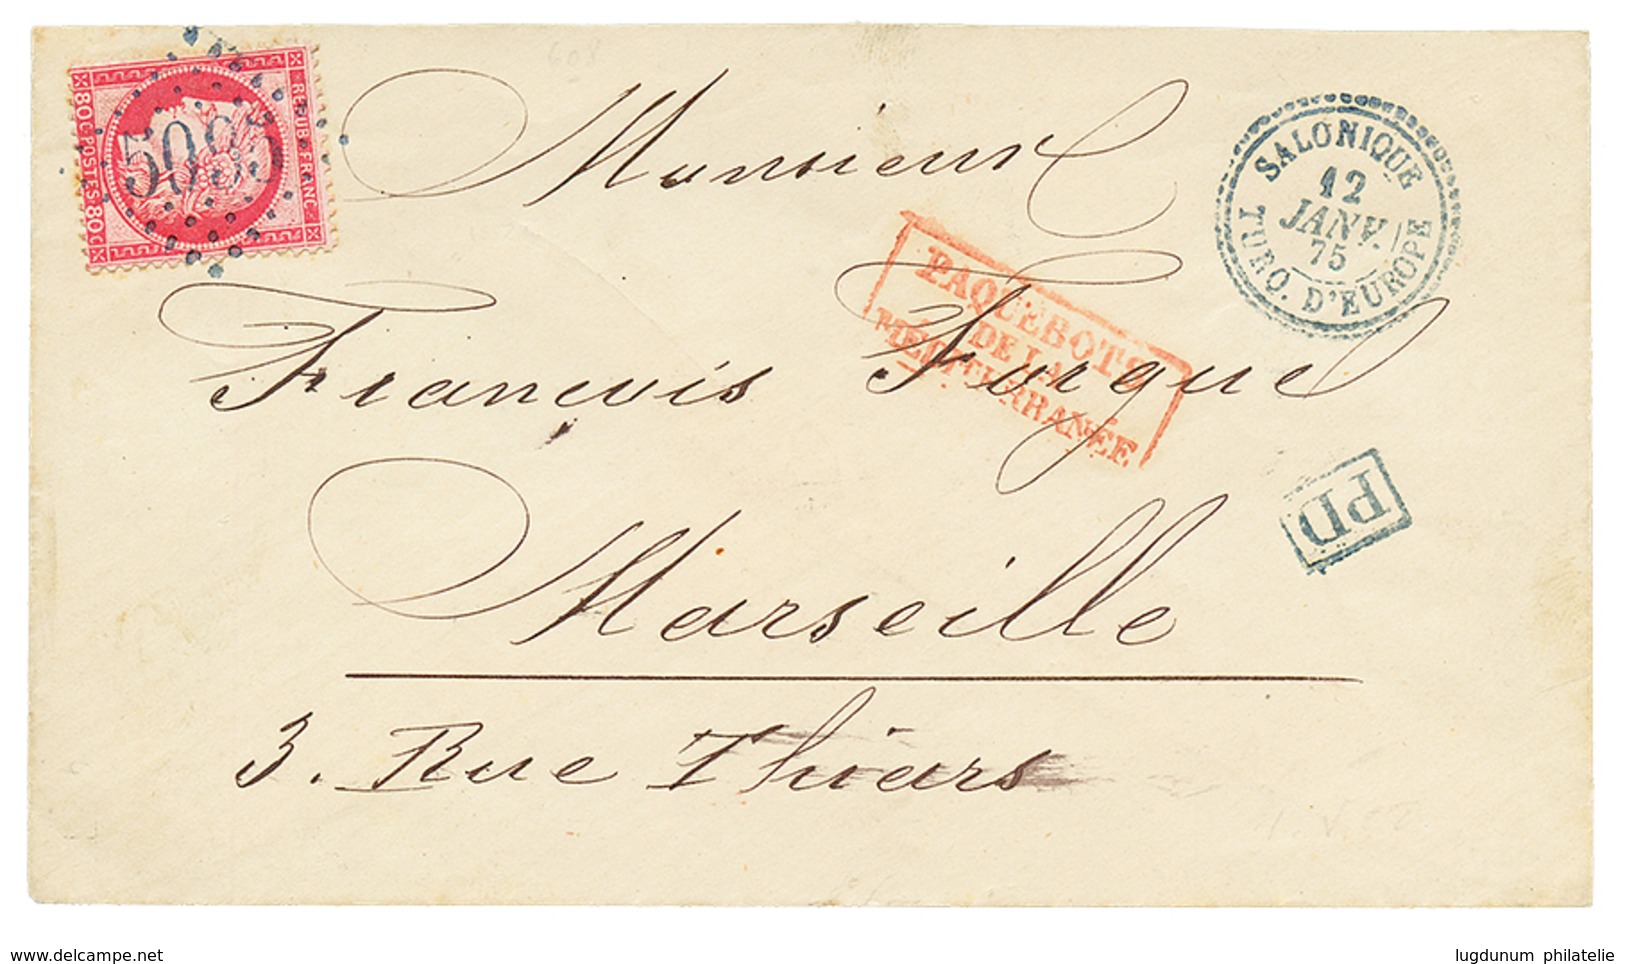 608
REPUB. FRANC.
80 C. POSTES 80 C.
5095
Monsieur
SALONIQUE
12
JANV.
75
TURQ. D'EUROPE
PAQUEBOTS
DE LA
MÉDITERRANÉE
François Forgue
PD
Marseille
3. Rue Thiars
www.delcampe.net
lugdunum philatelie